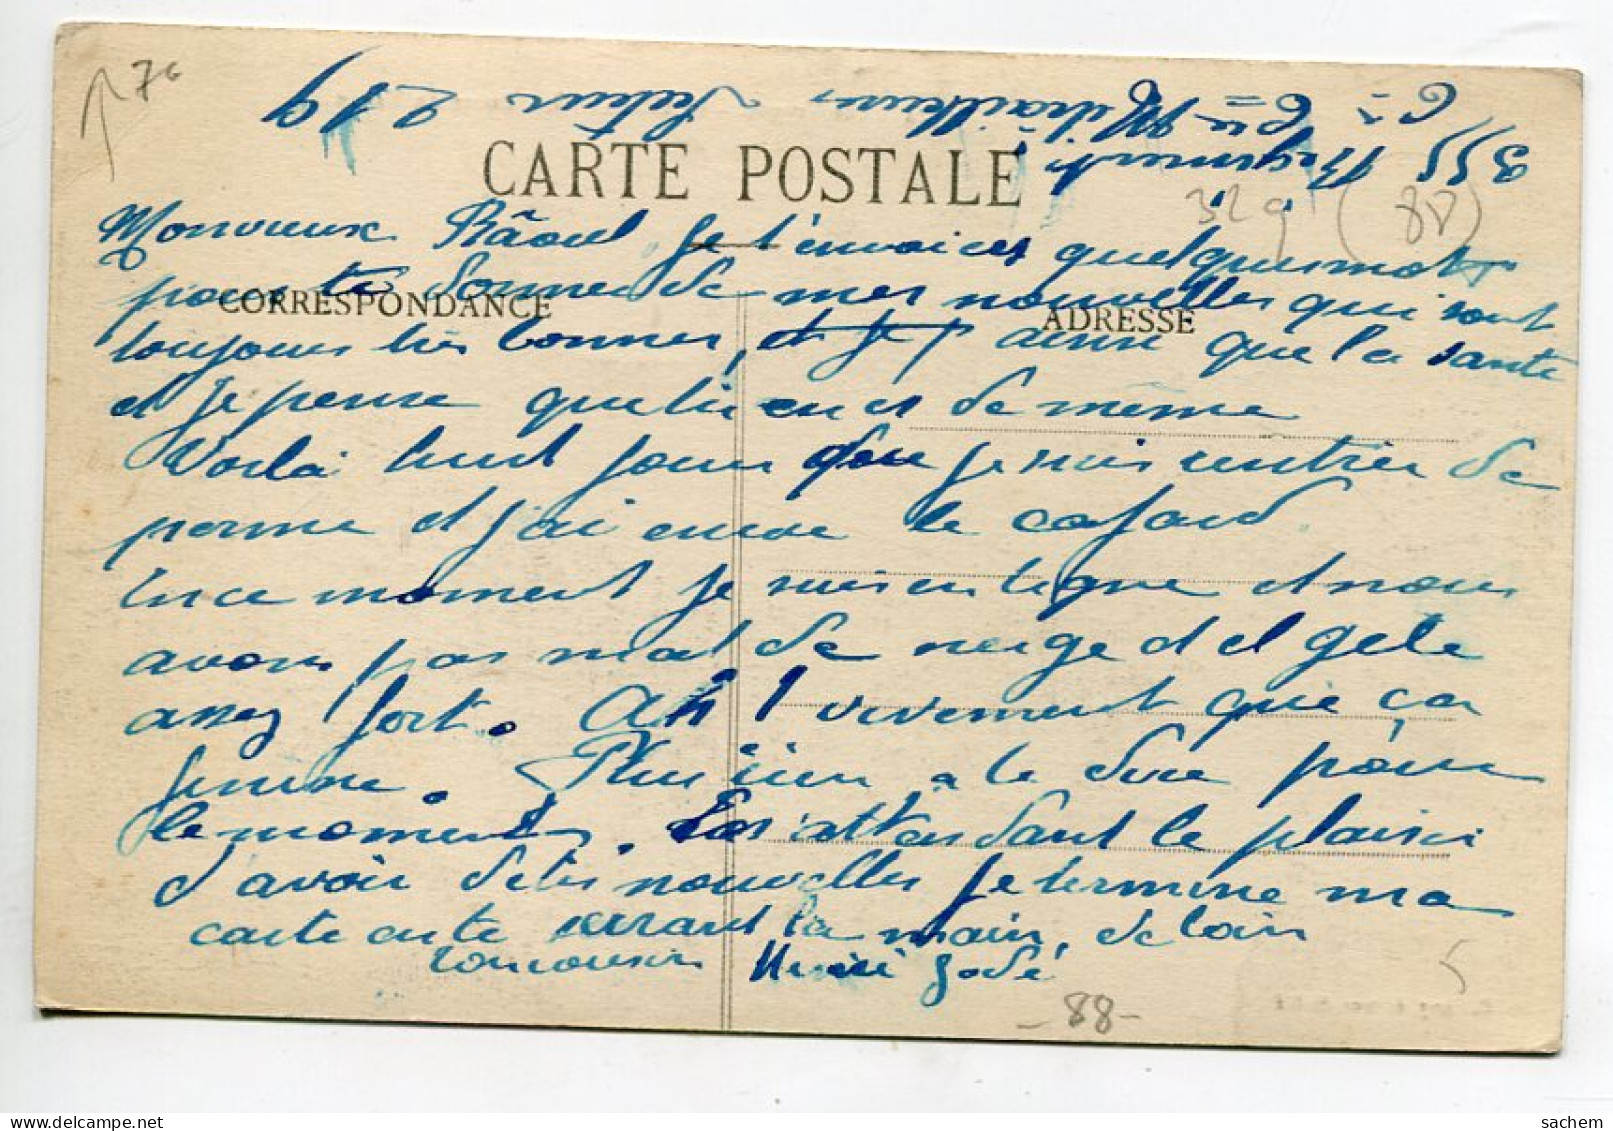 76
355 Régiment
Cie de Mitrailleurs Secteur 219
CARTE POSTALE
329 (80)
Mon vieux Râoul Je t'envoies quelques mots
pour te donner de mes nouvelles qui sont
CORRESPONDANCE
ADRESSE
toujours très bonnes, et je p ainsi que la santé
et je pense que tu en es de même
Voilà huit jours que je suis rentrer de
perme et j'ai encore le cafard.
En ce moment je suis en ligne et nous
avons pas mal de neige et el gele
assez fort. Ah ! vivement que ça
finisse. Plus rien a te dire pour
le moment. En attendant le plaisir
d'avoir de tes nouvelles je termine ma
carte en te serrant la main, de loin
Henri Godé
-88-
5
sachem — delcampe.net